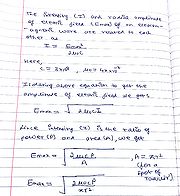 The Intensity (I) and radial amplitude
of electric field (Emax) of an electro-
magnetic wave are related to each
other as
I = Emax² / 2μ₀c
Here,
c = 3×10⁸ , μ₀ = 4π×10⁻⁷
above equation to get the
amplitude of electric field we get
Emax = √2μ₀cI
Since intensity (I) is the ratio of
power (P) and area (A), we get
Emax = √(2μ₀cP / A) , A = πr²
(for a
spot of
radius r)
Emax = √(2μ₀cP / πr²)